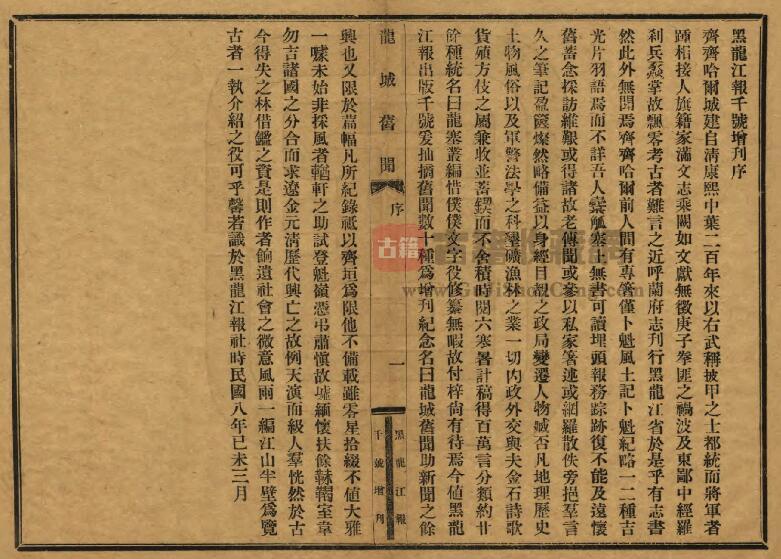 黑龍江報千號增刊序
齊齊哈爾城建自淸康熙中葉二百年來以右武稱披甲之士都統而將軍者
踵相接人旗籍家滿文志乘闕如文獻無徵庚子拳匪之禍波及東鄙中經羅
刹兵燹掌故飄零考古者難言之近呼蘭府志刊行黑龍江省於是乎有志書
然此外無聞焉齊齊哈爾前人間有專著僅卜魁風土記卜魁紀略一二種吉
光片羽語焉而不詳吾人橐筆塞上無書可讀埋頭報務踪跡復不能及遠懷
舊蓄念採訪維艱或得諸故老傳聞或參以私家箸述或網羅散佚旁挹羣言
久之筆記盈篋燦然略備益以身經目覩之政局變遷人物臧否凡地理歷史
土物風俗以及軍警法學之科墾礦漁林之業一切內政外交與夫金石詩歌
貨殖方伎之屬兼收並蓄鍥而不舍積時閱六寒暑計稿得百萬言分類約廿
餘種統名曰龍塞叢編惜僕僕文字役修纂無暇故付梓尙有待焉今値黑龍
江報出版千號爰抽摘舊聞數十種爲增刊紀念名曰龍城舊聞助新聞之餘
龍城舊聞
序
一
黑龍江報
千號增刊
興也又限於篇幅凡所紀錄祗以齊垣爲限他不備載雖零星拾綴不値大雅
一噱未始非採風者輶軒之助試登魁嶺憑弔肅愼故墟緬懷扶餘靺鞨室韋
勿吉諸國之分合而求遼金元淸歷代興亡之故例天演而級人羣恍然於古
今得失之林借鑑之資是則作者餉遺社會之微意風雨一編江山半壁爲覽
古者一執介紹之役可乎馨若識於黑龍江報社時民國八年己未三月
古籍
www.GuJiShuCang.com